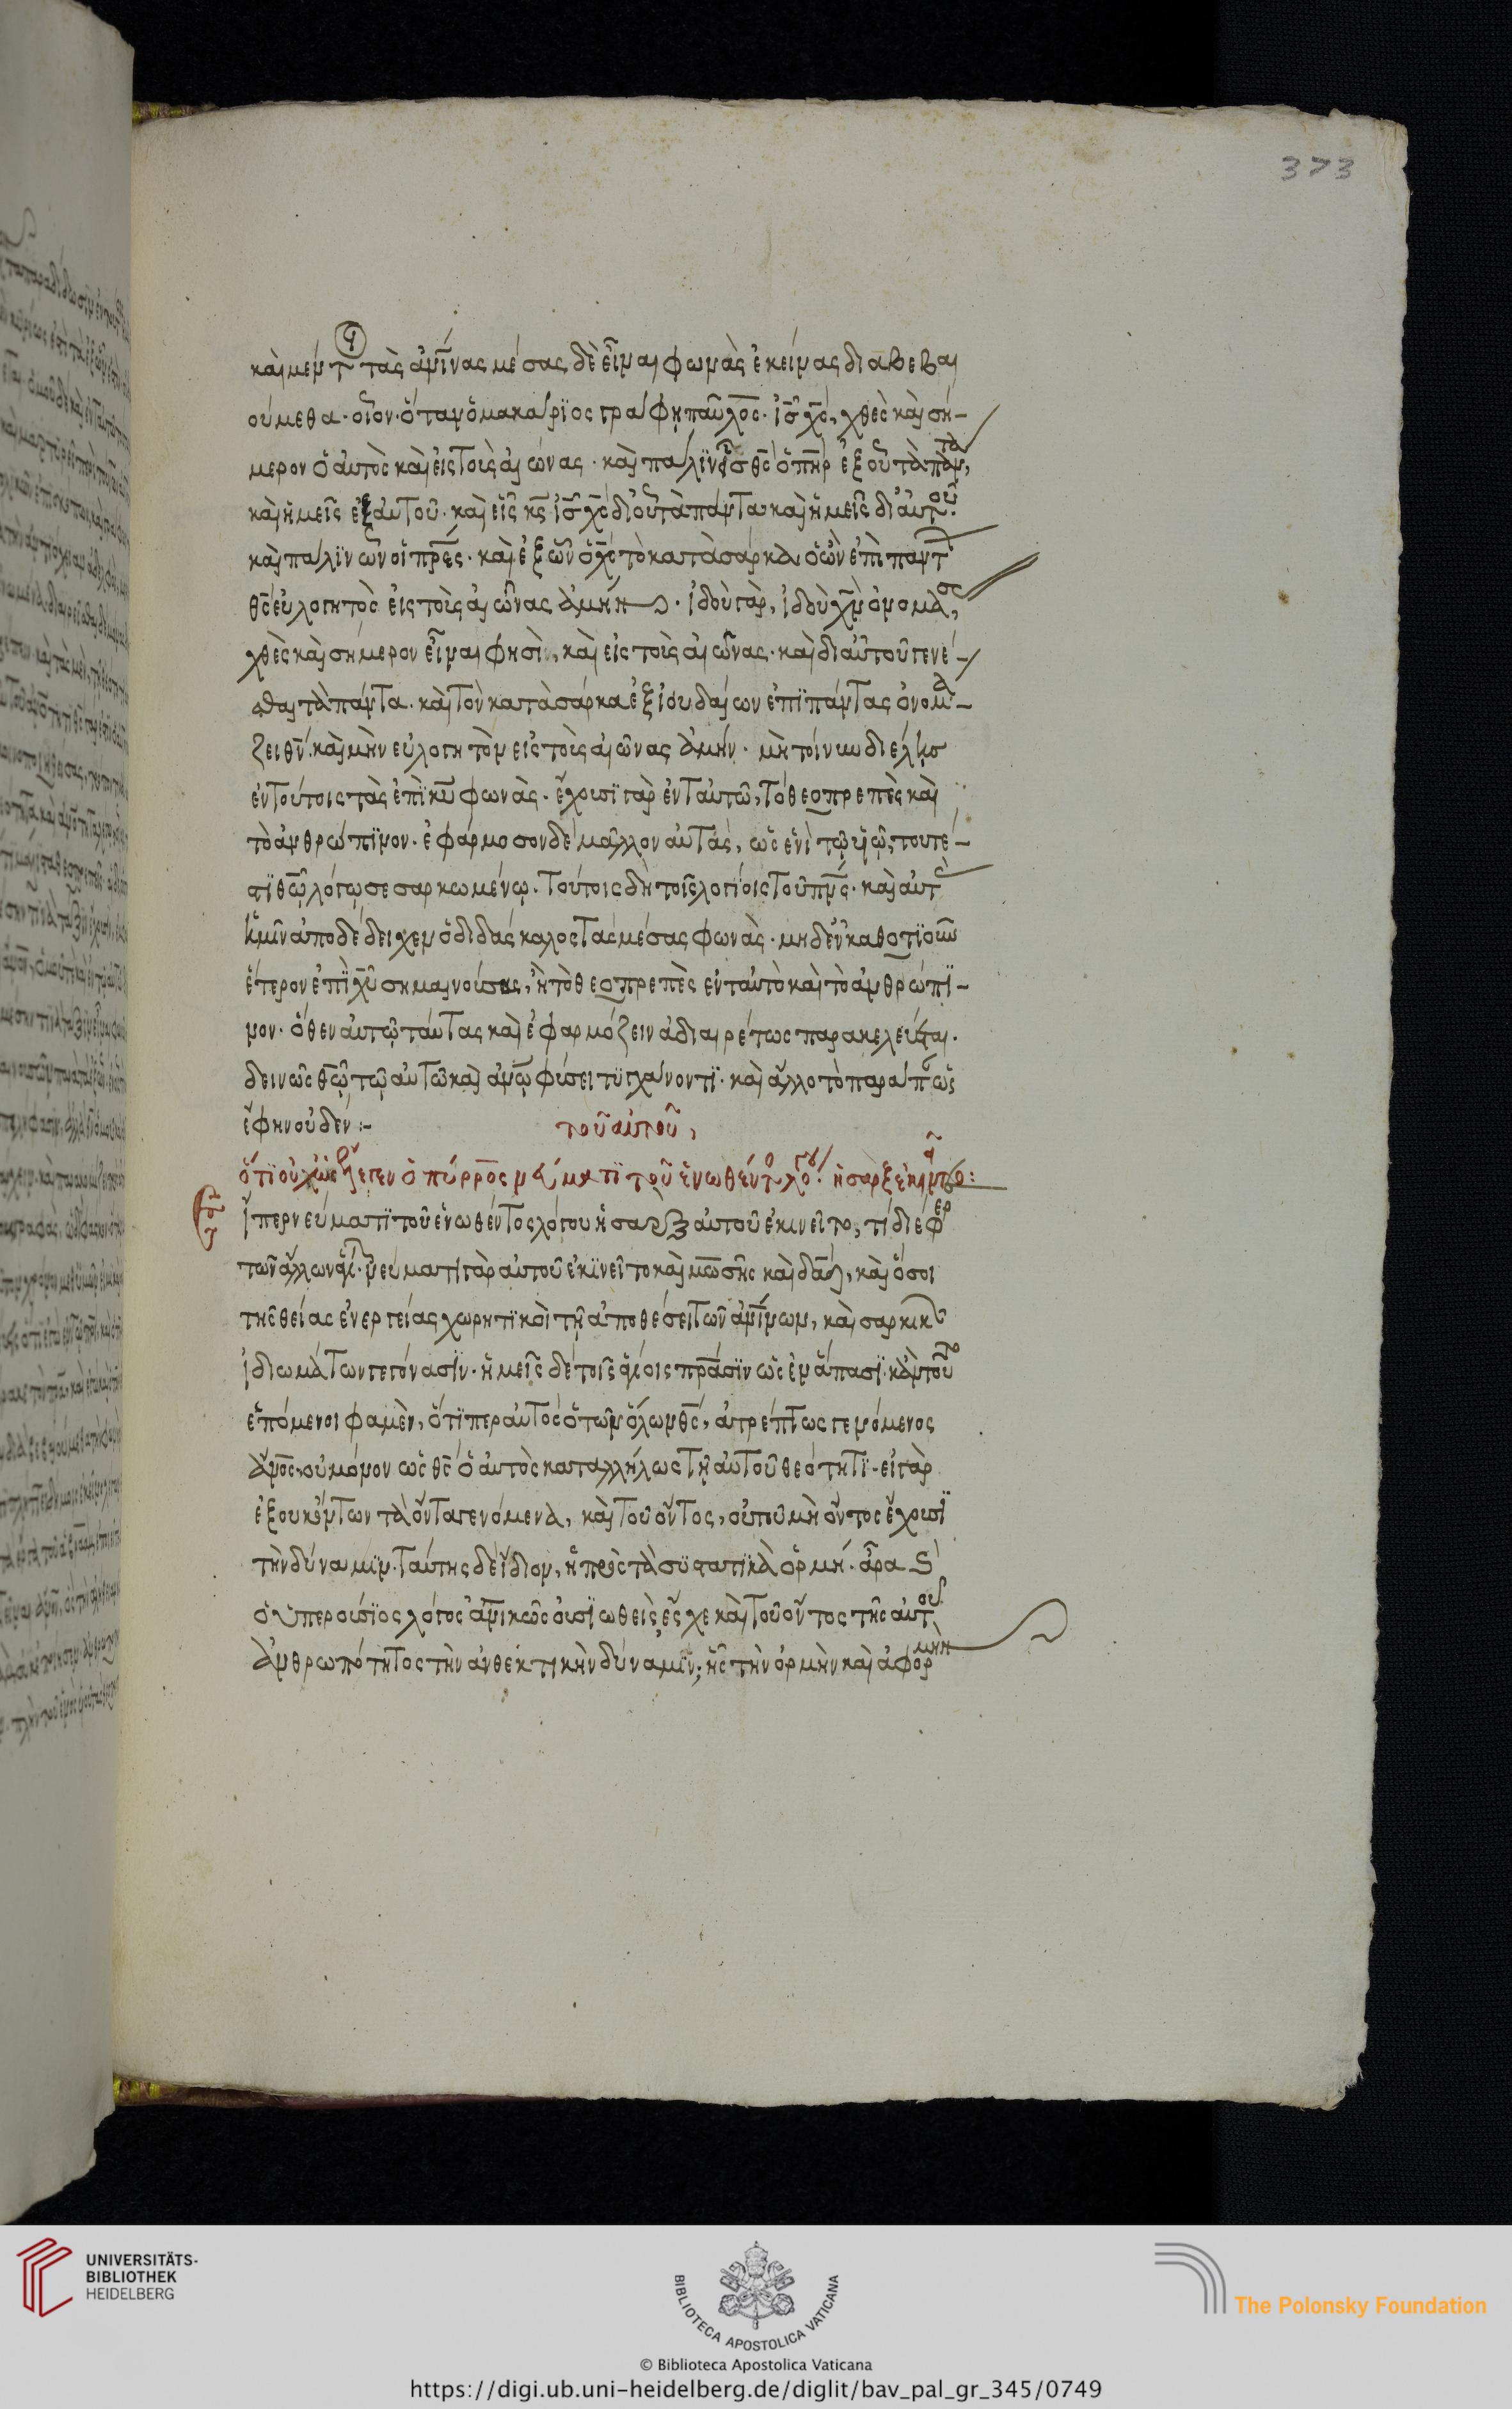 373
καὶ μέντοι τὰς ἀμφιμέσας δὲ εἶναι φωνὰς ἐκείνας διαβεβαι
ούμεθα· οἷον· ὅταν ὁ μακάριος γράφη παῦλος· ἰς χς, χθὲς καὶ σή-
μερον ὁ αὐτὸς καὶ εἰς τοὺς αἰώνας· καὶ πάλιν εἷς θς ὁ πηρ ἐξ οὗ τὰ πάντα,
καὶ ἡμεῖς ἐξ αὐτοῦ· καὶ εἷς κς ἰς χς δι' οὗ τὰ πάντα καὶ ἡμεῖς δι' αὐτοῦ.
καὶ πάλιν ὧν οἱ πρες· καὶ ἐξ ὧν ὁ χς τὸ κατὰ σάρκα· ὁ ὢν ἐπὶ πάντ
θς εὐλογητὸς εἰς τοὺς αἰῶνας ἀμήν· ἰδοὺ γὰρ, ἰδοὺ χν ὀνομάσας,
χθὲς καὶ σήμερον εἶναι φησὶν, καὶ εἰς τοὺς αἰῶνας· καὶ δι αὐτοῦ γενέ-
σθαι τὰ πάντα· καὶ τὸν κατὰ σάρκα ἐξ ἰουδαίων ἐπὶ πάντας ὀνομά-
ζει θν· καὶ μὴν εὐλογητὸν εἰς τοὺς αἰῶνας ἀμήν· μὴ τοίνυν διέλης
ἐν τούτοις τὰς ἐπὶ κυ φωνὰς· ἔχουσι γὰρ ἐν ταὐτῶ, τὸ θεοπρεπὲς καὶ
τὸ ἀνθρώπινον· ἐφάρμοσον δὲ μᾶλλον αὐτὰς, ὡς ἑνὶ τῷ υἱῷ, τουτέ-
στι θῷ λόγῳ σεσαρκωμένῳ· τούτοις δὴ τοῖς λογίοις τοῦ πρς· καὶ αὐτ
ἡμῖν ἀποδέδειχεν ὁ διδάσκαλος τὰς μέσας φωνὰς· μηδὲν καθοτιοῦν
ἕτερον ἐπὶ χυ σημαινούσας, ἢ τὸ θεοπρεπὲς ἐν ταὐτὸ καὶ τὸ ἀνθρώπι-
νον· ὅθεν αὐτῷ ταύτας καὶ ἐφαρμόζειν ἀδιαιρέτως παρακελεύεται·
δεινῶς θῷ τῷ αὐτῶ καὶ ἀνῷ φύσει τυγχάνοντι· καὶ ἄλλο τὸ παράπαν ὡς
ἔφην οὐδέν:-
τοῦ αὐτοῦ,
ὅτι οὐχ ὡς ἔλεγεν ὁ πύρρος νεύματι τοῦ ἑνωθέντος λόγου ἡ σὰρξ ἐκινεῖτο:
Εἴπερ νεύματι τοῦ ἑνωθέντος λόγου ἡ σὰρξ αὐτοῦ ἐκινεῖτο, τί διέφερ
τῶν ἄλλων ἁγί· νεύματι γὰρ αὐτοῦ ἐκινεῖτο καὶ μωσῆς καὶ δαδ, καὶ ὅσοι
τῆς θείας ἐνεργείας χωρητικοὶ τῇ ἀποθέσει τῶν ἀνίνων, καὶ σαρκικῶν
ἰδιωμάτων γεγόνασιν· ἡμεῖς δὲ τοῖς ἁγίοις πράσιν ὡς ἐν ἅπασι· κἀν τούτο
ἑπόμενοι φαμὲν, ὅτιπερ αὐτὸς ὁ τῶν ὅλων θς, ἀτρέπτως γενόμενος
ἄνος· οὐ μόνον ὡς θς ὁ αὐτὸς καταλλήλως τῇ αὐτοῦ θεότητι· εἰ γὰρ
ἐξ οὐκ ὄντων τὰ ὄντα γενόμενα, καὶ τοῦ ὄντος, οὐ τοῦ μὴ ὄντος ἔχουσι
τὴν δύναμιν· ταύτης δὲ ἴδιον, ἡ πρὸς τὰ συστατικὰ ὁρμή· ἄρα
ὁ ὑπερούσιος λόγος ἀνικῶς οὐσιωθεὶς ἔσχε καὶ τοῦ ὄντος τῆς αὐτοῦ
ἀνθρωπότητος τὴν ἀνθεκτικὴν δύναμιν, ἧς τὴν ὁρμὴν καὶ ἀφορμὴν
UNIVERSITÄTS-
BIBLIOTHEK
HEIDELBERG
BIBLIOTECA APOSTOLICA VATICANA
© Biblioteca Apostolica Vaticana
The Polonsky Foundation
https://digi.ub.uni-heidelberg.de/diglit/bav_pal_gr_345/0749